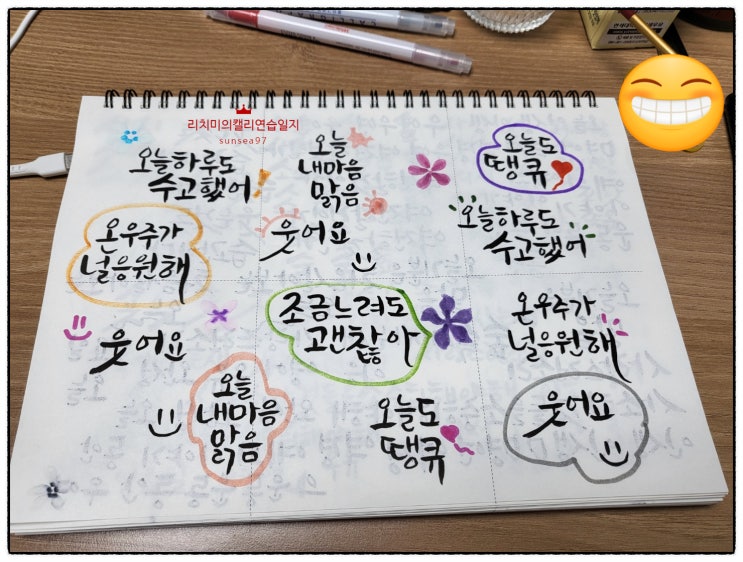 리치미의캘리연습일지
sunsea97
오늘하루도
수고했어!
오늘
내마음
맑음
오늘도
땡큐
온우주가
널응원해
웃어요
오늘하루도
수고했어
웃어요
조금느려도
괜찮아
온우주가
널응원해
오늘
내마음
맑음
오늘도
땡큐
웃어요